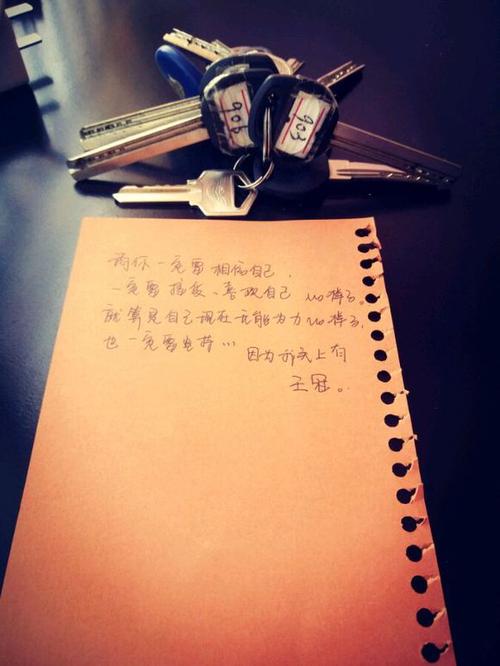 906
903
而你一定要相信自己,
一定要接受、喜欢自己 的样子。
就算是自己现在无能为力的样子,
也一定要坚持… 因为 头上有
王冠。